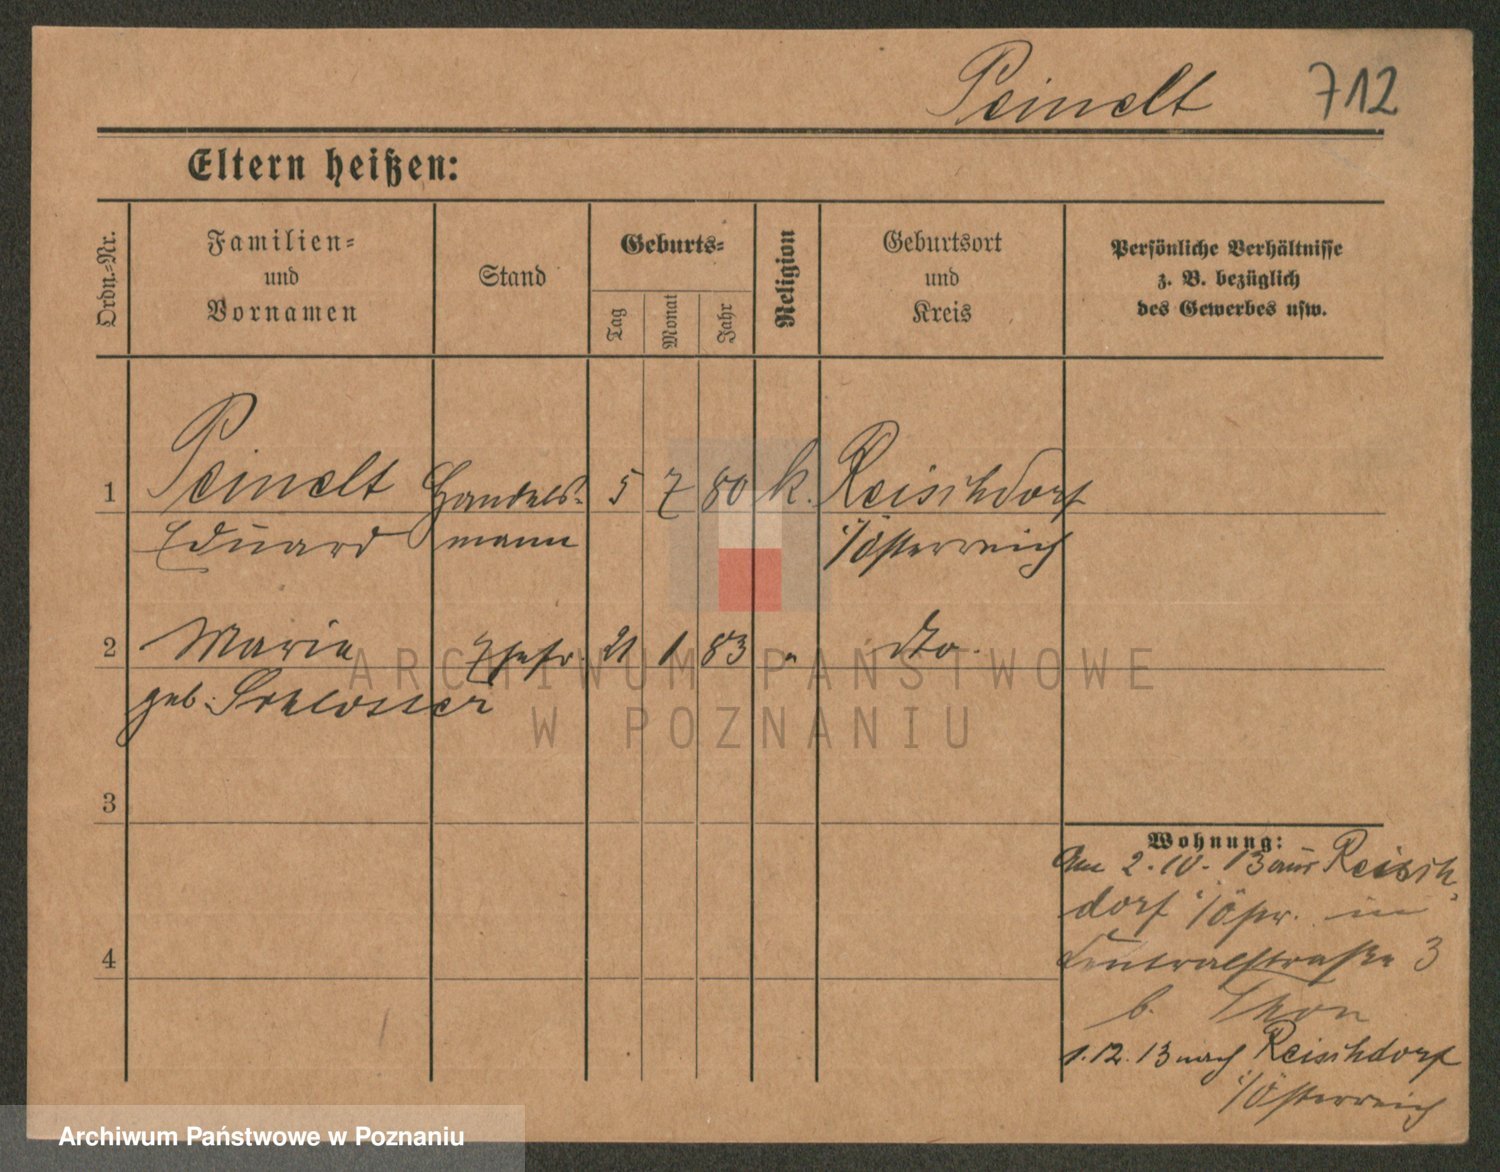 Peinelt 712
Eltern heißen:
Ordn.-Nr.
Familien=
und
Vornamen
Stand
Geburts=
Tag
Monat
Jahr
Religion
Geburtsort
und
Kreis
Persönliche Verhältnisse
z. B. bezüglich
des Gewerbes usw.
1 Peinelt Handels- 5 7 80 k. Reischdorf
Eduard mann i/Österreich
2 Maria Ehefr. 21 1 83 " dto.
geb. Schlosser
3
4
Wohnung:
Am 2.IV.13 aus Reisch-
dorf i/Östr. in
Centralstraße 3
b. Thon
1.12.13 nach Reischdorf
i/Österreich
ARCHIWUM PAŃSTWOWE
W POZNANIU
Archiwum Państwowe w Poznaniu